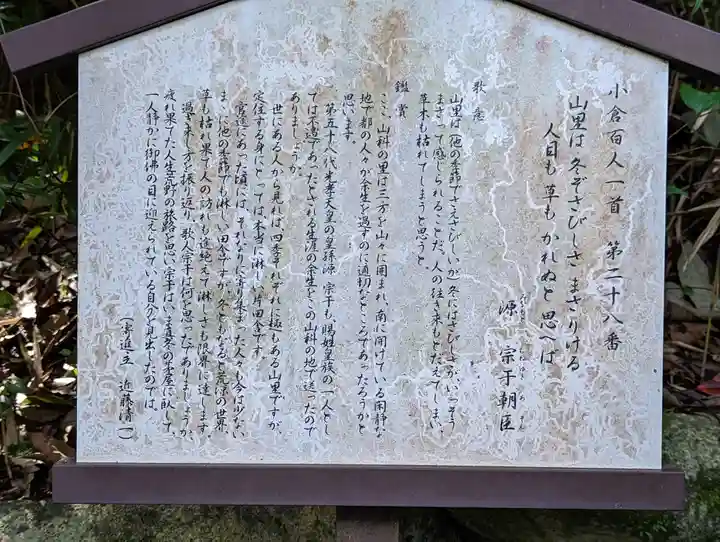 小倉百人一首 第二十八番
山里は 冬ぞさびしさ まさりける
人目も 草も かれぬと思へば
源 宗于朝臣
歌意
山里は(他の季節でさえさびしいが)冬にはさびしさがいっそう
まさって感じられることだ。人の往き来もとだえてしまい、
草木も枯れてしまうと思うと。
鑑賞
ここ、山科の里は三方を山々に囲まれ、南に開けている閑静な
地で都の人々が余生を過すのに適切なところであったろうかと
思います。
第五十八代光孝天皇の皇孫源 宗于も、賜姓皇族の一人とし
ては不遇であったとされる生涯の余生をこの山科の地で送ったので
ありましょうか。
世にある人から見れば、四季それぞれに極もある山里ですが、
定住する身にとっては、本当に淋しい片田舎です。
官途にあった頃には、それなりに寄り集まった人々も今は少ない
まゝに他の季節でも淋しい田舎ですが、冬ともなると荒涼の世界、
草も枯れ果て人の訪れも途絶えて淋しさも限界に達します。
過ぎ来し方を振り返り、歌人宗于は何を思ったでありましょうか、
疲れ果てた人生荒野の旅路を思い、宗于はいま真冬の茅屋に臥して
一人静かに御佛の目に迎えられている自分を見出したのでは。
近藤清一)